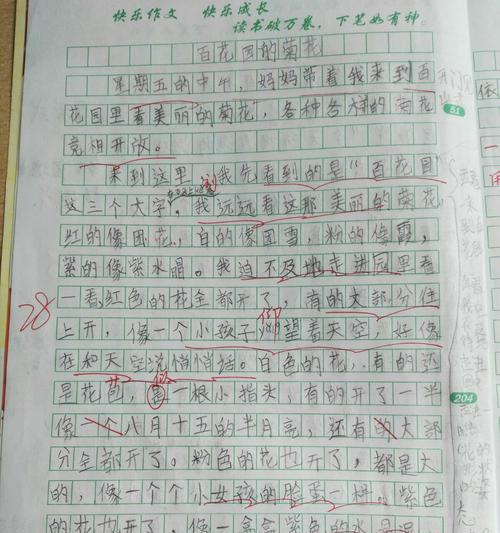 快乐作文 快乐成长
读书破万卷，下笔如有神。
百花园的菊花
星期五的中午，妈妈带着我来到百
花园里看美丽的菊花，各种各样的菊花
竞相开放。
来到这里，我先看到的是“百花园”
这三个大字，我远远看这那美丽的菊花，
红的像团花，白的像团雪，粉的像霞，
紫的像紫水晶。我迫不及地走进园里看
一看，红色的花全都开了，有的大部分往
上开，像一个小孩子仰望着天空，好像
在和天空说悄悄话。白色的花，有的还
是花苞，像一根小指头，有的开了一半
像一个八月十五的半月亮，还有的大部
分全都开了。粉色的花也开了，都是大
的，像一个个小女孩的脸蛋一样。紫色
的花也开了，像一盒盒紫色的水晶
28
51
204